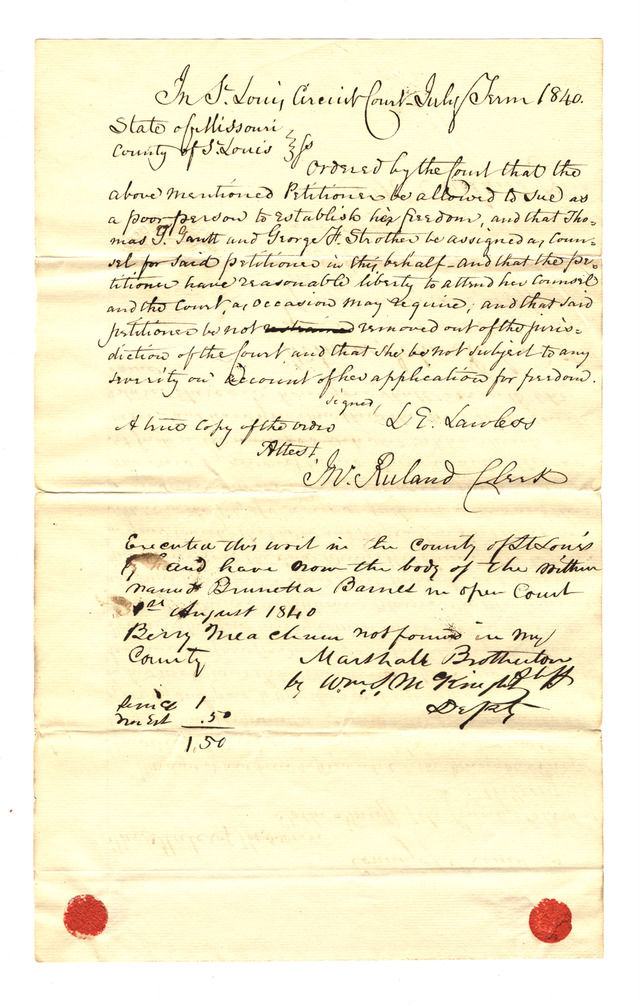 In St. Louis Circuit Court July Term 1840.
State of Missouri
County of St Louis } Ss
Ordered by the Court that the
above mentioned Petitioner be allowed to sue as
a poor person to establish his freedom, and that Tho-
mas T. Gantt and George F. Strother be assigned as Coun-
sel for said petitioner in this behalf - and that the pe-
titioner have reasonable liberty to attend her Counsel
and the Court, as occasion may require; and that said
petitioner be not restrained removed out of the juris-
diction of the Court and that she be not subject to any
severity on account of her application for freedom.
signed,
A true Copy of the order L E. Lawless
Attest,
Jno. Ruland Clerk
Executed this writ in the County of St Louis
and have now the body of the within
named Brunetta Barnes in open Court
1st August 1840
Berry Meachum not found in my
County Marshall Brotherton
by Wm. S. McKnight Shff
Depty
Service 1
Non Est .50
1,50